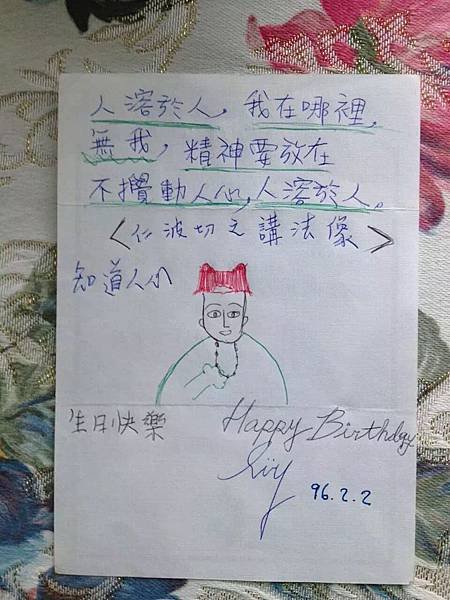 人溶於人，我在哪裡，
無我，精神要放在
不攪動人心，人溶於人。
<仁波切之講法像>
知道人小
生日快樂
Happy Birthday
96.2.2